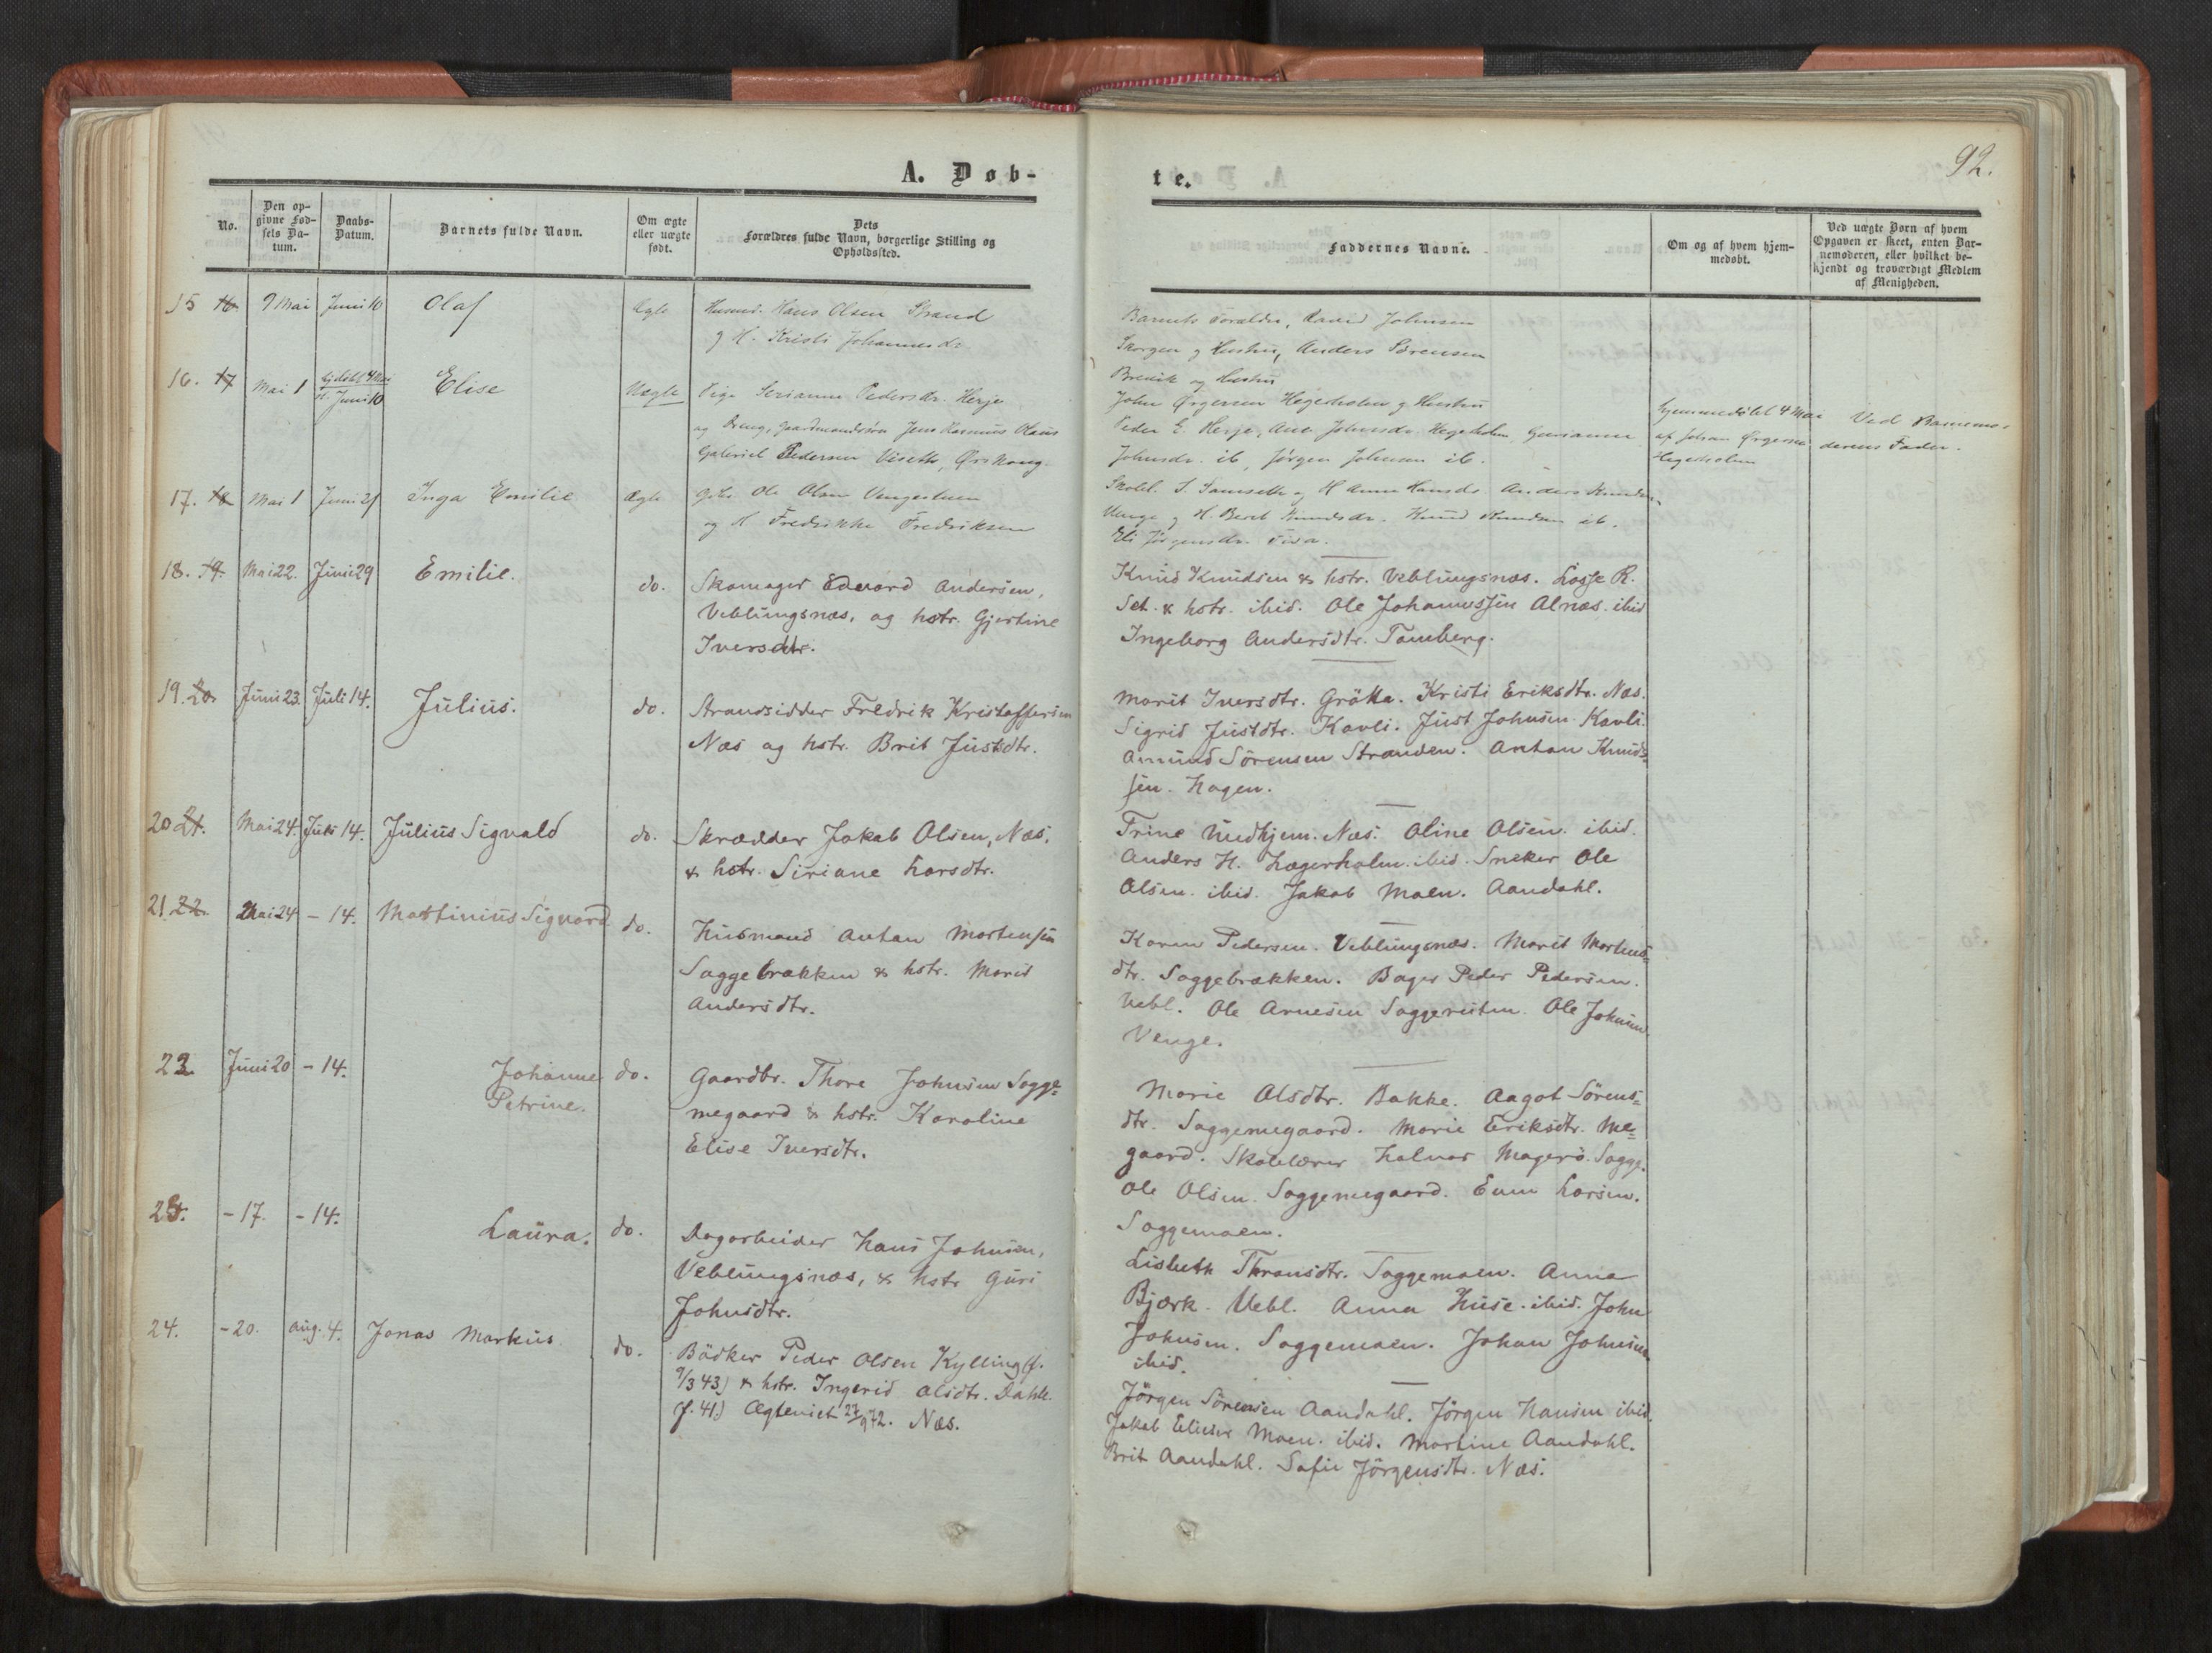 92.
A. Døb-
te.
No.
Den op-
givne Fød-
sels Da-
tum.
Daabs-
Datum.
Barnets fulde Navn.
Om ægte
eller uægte
født.
Dets
Forældres fulde Navn, borgerlige Stilling og
Opholdssted.
Faddernes Navne.
Om og af hvem hjem-
medøbt.
Ved uægte Børn af hvem
Opgaven er skeet, enten Bar-
nemoderen, eller hvilket be-
kjendt og troværdigt Medlem
af Menigheden.
15 16 9 Mai Juni 10 Olaf Ægte
Husmd. Hans Olsen Strand
og H. Kristi Johannesdr
Barnets Forældre, Johnsen
og Hustru, Anders Sörensen
Brevik og Hustru
16. 17 Mai 1 hjdöbt 4 Mai
Juni 10
Elise Uægte
Pige Serianna Pedersdr. Herje
og Dreng, Gaardmandssön Jens Rasmus Olaus
Gabriel Pedersen Viset, Örskoug.
John Örgersen Hegerholm og Hustru
Peder E. Herje, Johnsdr. Hegerholm, Gurianna
Johnsdr. ib, Jörgen Johnsen ib.
Hjemmedöbt 4 Mai
af Johan Örgersen
Hegerholm
Ved Barnemo-
derens Fader.
17. 18 Mai 1 Juni 21 Inga Emilie Ægte
Ole Olsen
og H Fredrikke Fredriksen
Skolel. S. Samseth og H Anne Hansdr. Anders Knudsen
Venge og H. Beret Knudsdr. Knud Knudsen ib.
Eli Jörgensdr.
18. 19. Mai 22. Juni 29 Emilie. do.
Skomager Edvard Andersen,
Veblungsnæs, og hstr. Gjertine
Iversdtr.
Knud Knudsen & hstr. Veblungsnæs. Lasse R.
Set. & hstr. ibid. Ole Johannessen Alnæs. ibid
Ingeborg Andersdtr. Tomberg.
19. 20. Juni 23. Juli 14. Julius. do.
Strandsidder Fredrik Kristoffersen
Næs og hstr. Brit Justsdtr.
Marit Iversdtr. Grötta. Kristi Eriksdtr. Næs.
Sigrid Justdtr. Kavli. Just Johnsen Kavli.
Amund Sörensen Stranden. Anton Knud-
sen. Hagen.
20 21. Mai 24. Juli 14. Julius Sigvald do.
Skrædder Jakob Olsen, Næs,
& hstr. Siriane Larsdtr.
Trine Unhjem. Næs. Oline Olsen. ibid.
Anders H. Hægerholm. ibid. Sneker Ole
Olsen. ibid. Jakob Moen. Aandahl.
21. 22. Mai 24 - 14. Martinius Sigvard do.
Husmand Anton Mortensen
Soggebrækken & hstr. Marit
Andersdtr.
Karen Pedersen. Veblungsnæs. Marit Mortens-
dtr. Soggebrækken. Bager Peder Pedersen.
Vebl. Ole Arnesen Sogge. Ole Johnsen
Venge.
22 Juni 20 - 14. Johanne
Petrine.
do.
Gaardbr. Thore Johnsen Sogge-
megaard & hstr. Karoline
Elise Iversdtr.
Marie Olsdtr. Bakke. Aagot Sörens-
dtr. Soggemegaard. Marie Eriksdtr. Me-
gaard. Skolelærer Halvor Magerö. Sogge.
Ole Olsen. Soggemegaard. Even Larsen.
Soggemoen.
23. - 17. - 14. Laura. do.
Dagarbeider Hans Johnsen,
Veblungsnæs, & hstr Guri
Johnsdtr.
Lisbeth Thronsdtr. Soggemoen. Anna
Bjørk. Vebl. Anna Huse. ibid. John
Johnsen. Soggemoen. Johan Johnsen
ibid.
24. - 20. Aug. 4. Jonas Markus do.
Bödker Peder Olsen Kylling (f.
9/3 43) & hstr. Ingerid Olsdtr. Dahle.
(f. 41.) Ægteviet 27/9 72. Næs.
Jörgen Sörensen Aandahl. Jörgen Hansen ibid.
Jakob Moen. ibid. Martine Aandahl.
Brit Aandahl. Sofie Jörgensdtr. Næs.